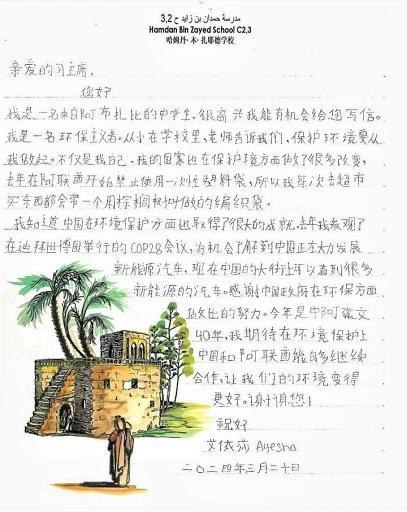 مدرسة حمدان بن زايد ح 3,2
Hamdan Bin Zayed School C2,3
哈姆丹·本·扎耶德学校
亲爱的习主席,
您好?
我是一名来自阿布扎比的中学生,很高兴我能有机会给您写信。
我是一名环保主义者。从小在学校里,老师告诉我们,保护环境要从
我做起。不仅是我自己,我的国家也在保护环境方面做了很多改变,
去年在阿联酋开始禁止使用一次性塑料袋,所以我每次去超市
买东西都会带一个用棕榈树叶做的编织袋。
我知道中国在环境保护方面也取得了很大的成就。去年我参观了
在迪拜世博园举行的COP28会议,有机会了解到中国正在大力发展
新能源汽车,现在中国的大街上可以看到很多
新能源的汽车。感谢中国政府在环保方面
做出的努力。今年是中阿建交
40年,我期待在环境保护上
中国和阿联酋能够继续
合作,让我们的环境变得
更好。谢谢您!
祝好
艾依莎 Ayesha
二〇二四年三月二十日